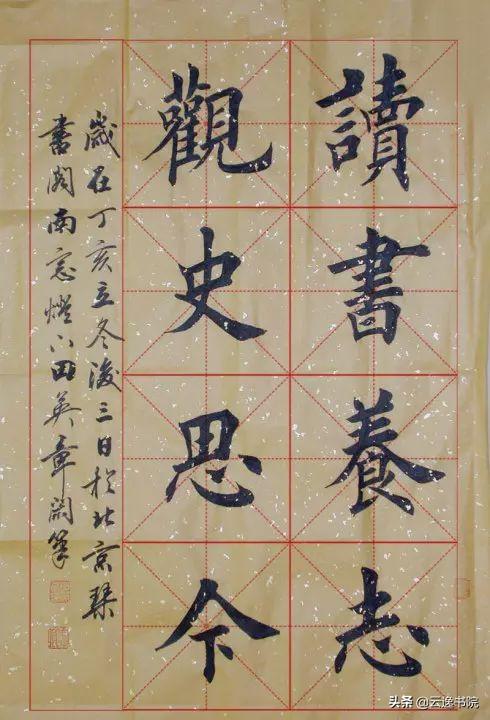 讀書養志
觀史思今
歲在丁亥立冬後三日於北京琴
書閣南窓燈下田英章開筆
头条 @云逸书院